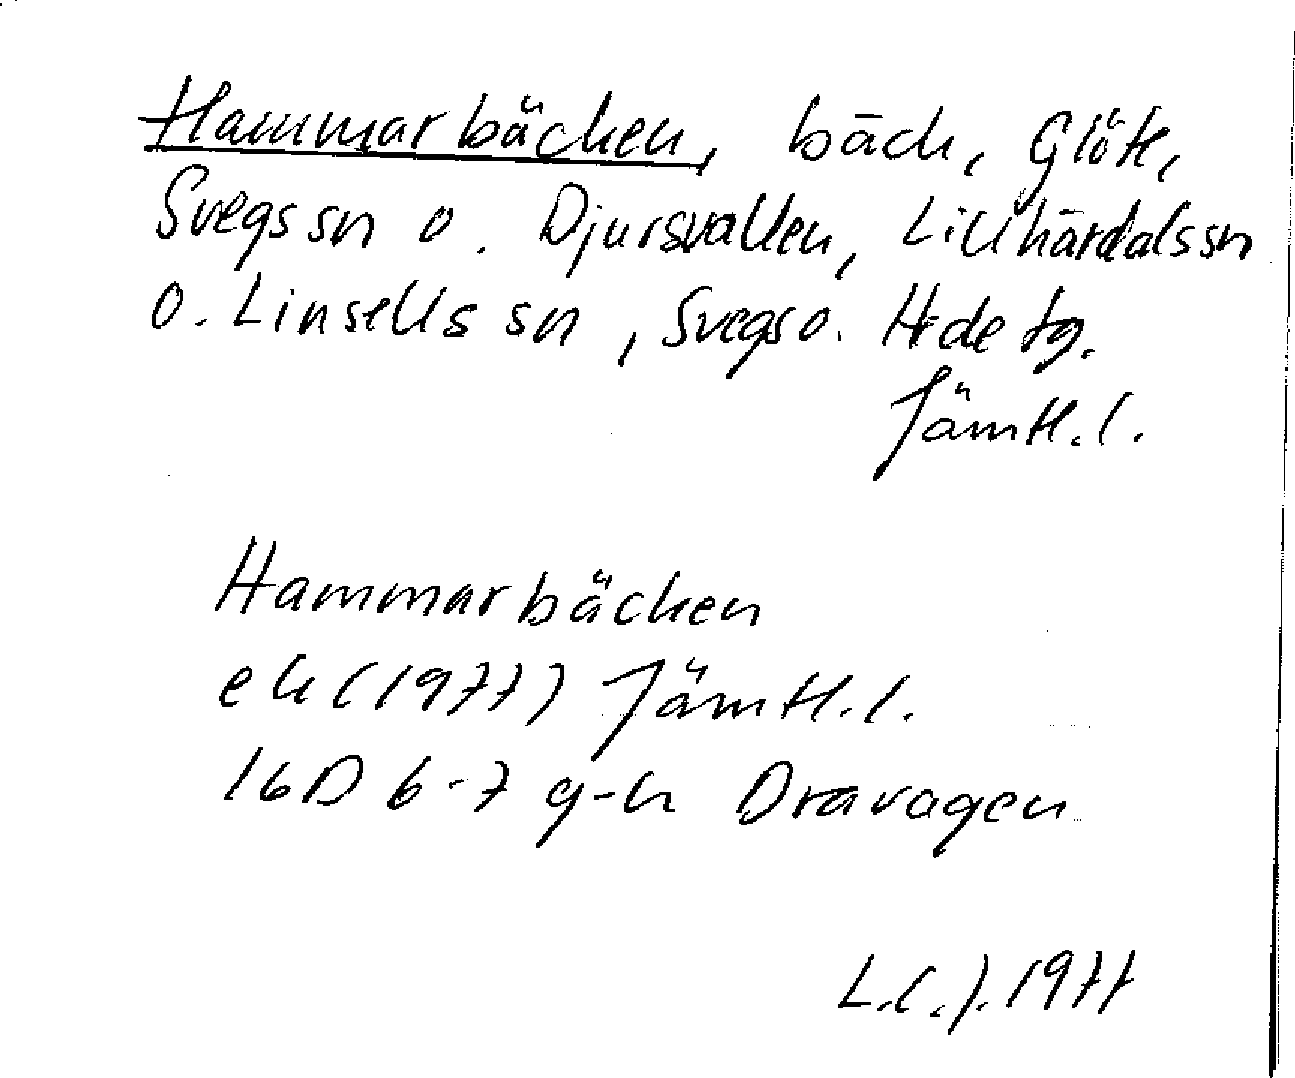 Hammarbäcken, bäck, Glöte,
Svegs sn o. Djursvallen, Lillhärdals sn
o. Linsells sn, Svegs o. Hede tg.
Jämtl. l.
Hammarbäcken
ek (1977) Jämtl. l.
16D 6-7 g-h Dravagen
L.C.J. 1977